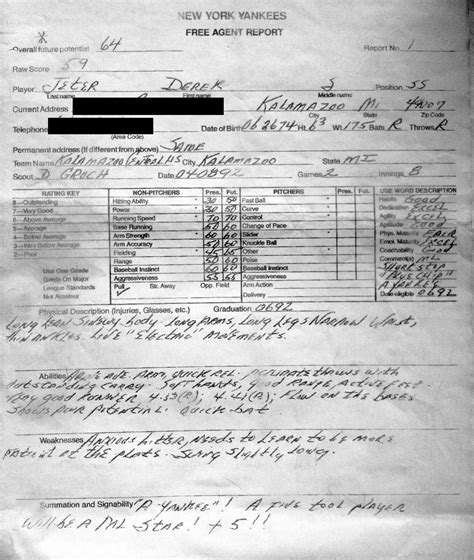 NEW YORK YANKEES
FREE AGENT REPORT
Overall future potential 64 Report No. 1
Raw Score 59
Player JETER DEREK S Position SS
Last name First name Middle name
Current Address KALAMAZOO MI 49007
Telephone Date of Birth 062674 Ht. 63 Wt. 175 Bats R Throws R
(Area Code)
Permanent address (if different from above) SAME
Team Name KALAMAZOO CENTRAL HS City KALAMAZOO State MI
Scout D GROCH Date 040892 Games 2 Innings
RATING KEY NON-PITCHERS Pres. Fut. PITCHERS Pres. Fut. USE WORD DESCRIPTION
8—Outstanding Hitting Ability 30 50 Fast Ball Habits Good
7—Very Good Power 30 50 Curve Dedication Excel
6—Above Average Running Speed 70 70 Control Agility Excel
5—Average Base Running Change of Pace Aptitude Good
4—Below Average Arm Strength 60 60 Slider Phys. Maturity FAIR
3—Well Below Average Arm Accuracy 50 Knuckle Ball Emot. Maturity Excel
2—Poor Fielding Other
Range 50 Poise Comments: ML
Use One Grade Baseball Instinct 60 60 Baseball Instinct SHORTSTOP
Grade On Major Aggressiveness 55 55 Aggressiveness "BLUE CHIP"
League Standards Pull Str. Away Opp. Field Arm Action A YANKEE
Not Amateur Delivery Date eligible 0692
Physical Description (Injuries, Glasses, etc.) Graduation 0692
LONG LEAN SINEWY body. LONG ARMS, LONG LEGS NARROW WAIST,
thin ANKLES. LIVE "ELECTRIC" MOVEMENTS.
Abilities ABOVE AVE. ARM, QUICK REL. ACCURATE throws with
outstanding CARRY. SOFT HANDS, good RANGE, ACTIVE FEET.
Very good RUNNER. Flow on the bases
Shows pwr potential. quick bat
Weaknesses Anxious hitter, needs to learn to be more
patient at the plate. Swing slightly long.
Summation and Signability "A YANKEE"! A FIVE TOOL player
Will be A ML Star! + 5!!